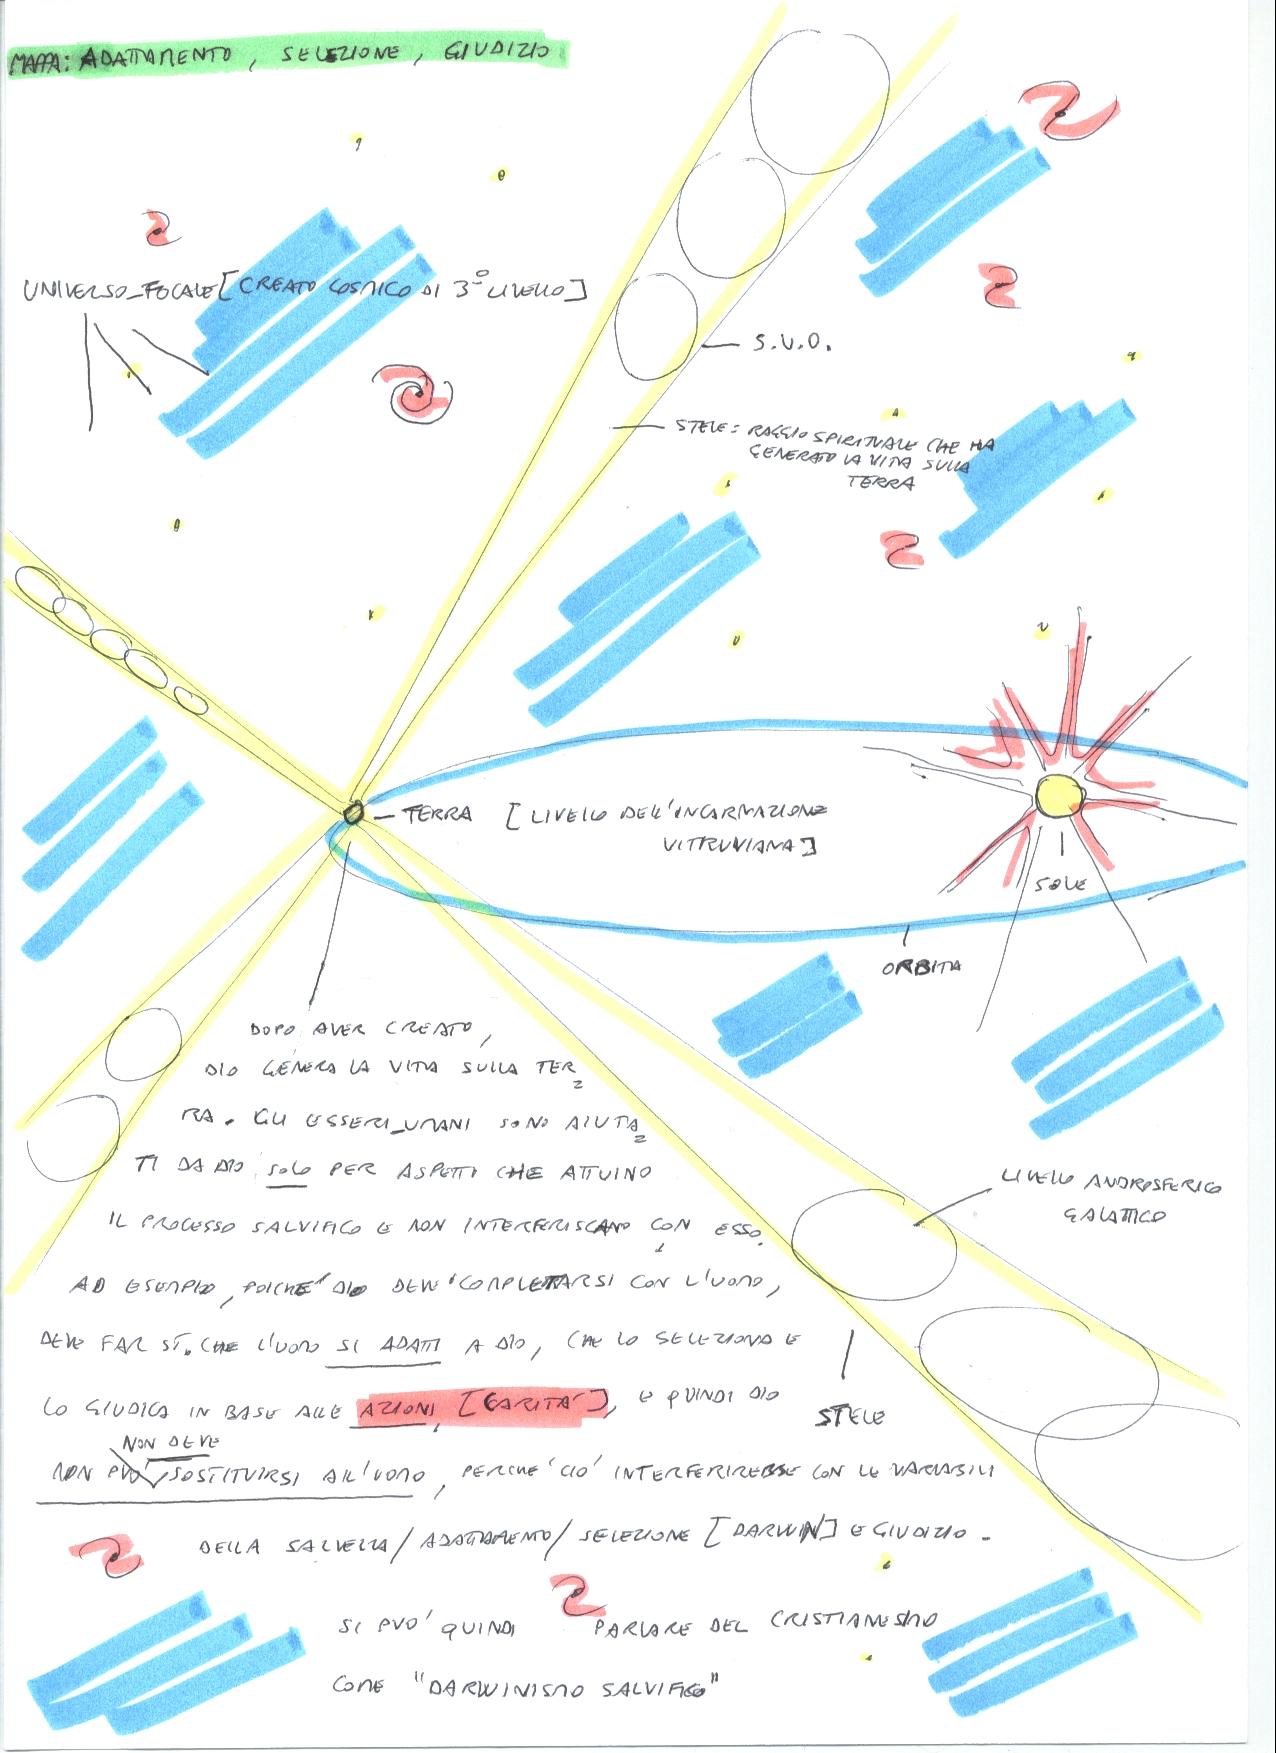 MAPPA: ADATTAMENTO, SELEZIONE, GIUDIZIO
UNIVERSO_FOCALE [CREATO COSMICO DI 3° LIVELLO]
S.U.O.
STELE: RAGGIO SPIRITUALE CHE HA
GENERATO LA VITA SULLA
TERRA
TERRA [LIVELLO DELL'INCARNAZIONE
VITRUVIANA]
SOLE
ORBITA
DOPO AVER CREATO,
DIO GENERA LA VITA SULLA TER=
RA. GLI ESSERI_UMANI SONO AIUTA=
TI DA DIO SOLO PER ASPETTI CHE ATTUINO
IL PROCESSO SALVIFICO E NON INTERFERISCANO CON ESSO.
LIVELLO ANDROSFERICO
GALATTICO
AD ESEMPIO, POICHE' DIO DEVE COMPLETARSI CON L'UOMO,
DEVE FAR SÌ CHE L'UOMO SI ADATTI A DIO, CHE LO SELEZIONA E
LO GIUDICA IN BASE ALLE AZIONI [CARITA'], E QUINDI DIO
STELE
NON DEVE
NON PUO' SOSTITUIRSI ALL'UOMO, PERCHE' CIO' INTERFERIREBBE CON LE VARIABILI
DELLA SALVEZZA/ADATTAMENTO/SELEZIONE [DARWIN] E GIUDIZIO.
SI PUO' QUINDI PARLARE DEL CRISTIANESIMO
COME "DARWINISMO SALVIFICO"